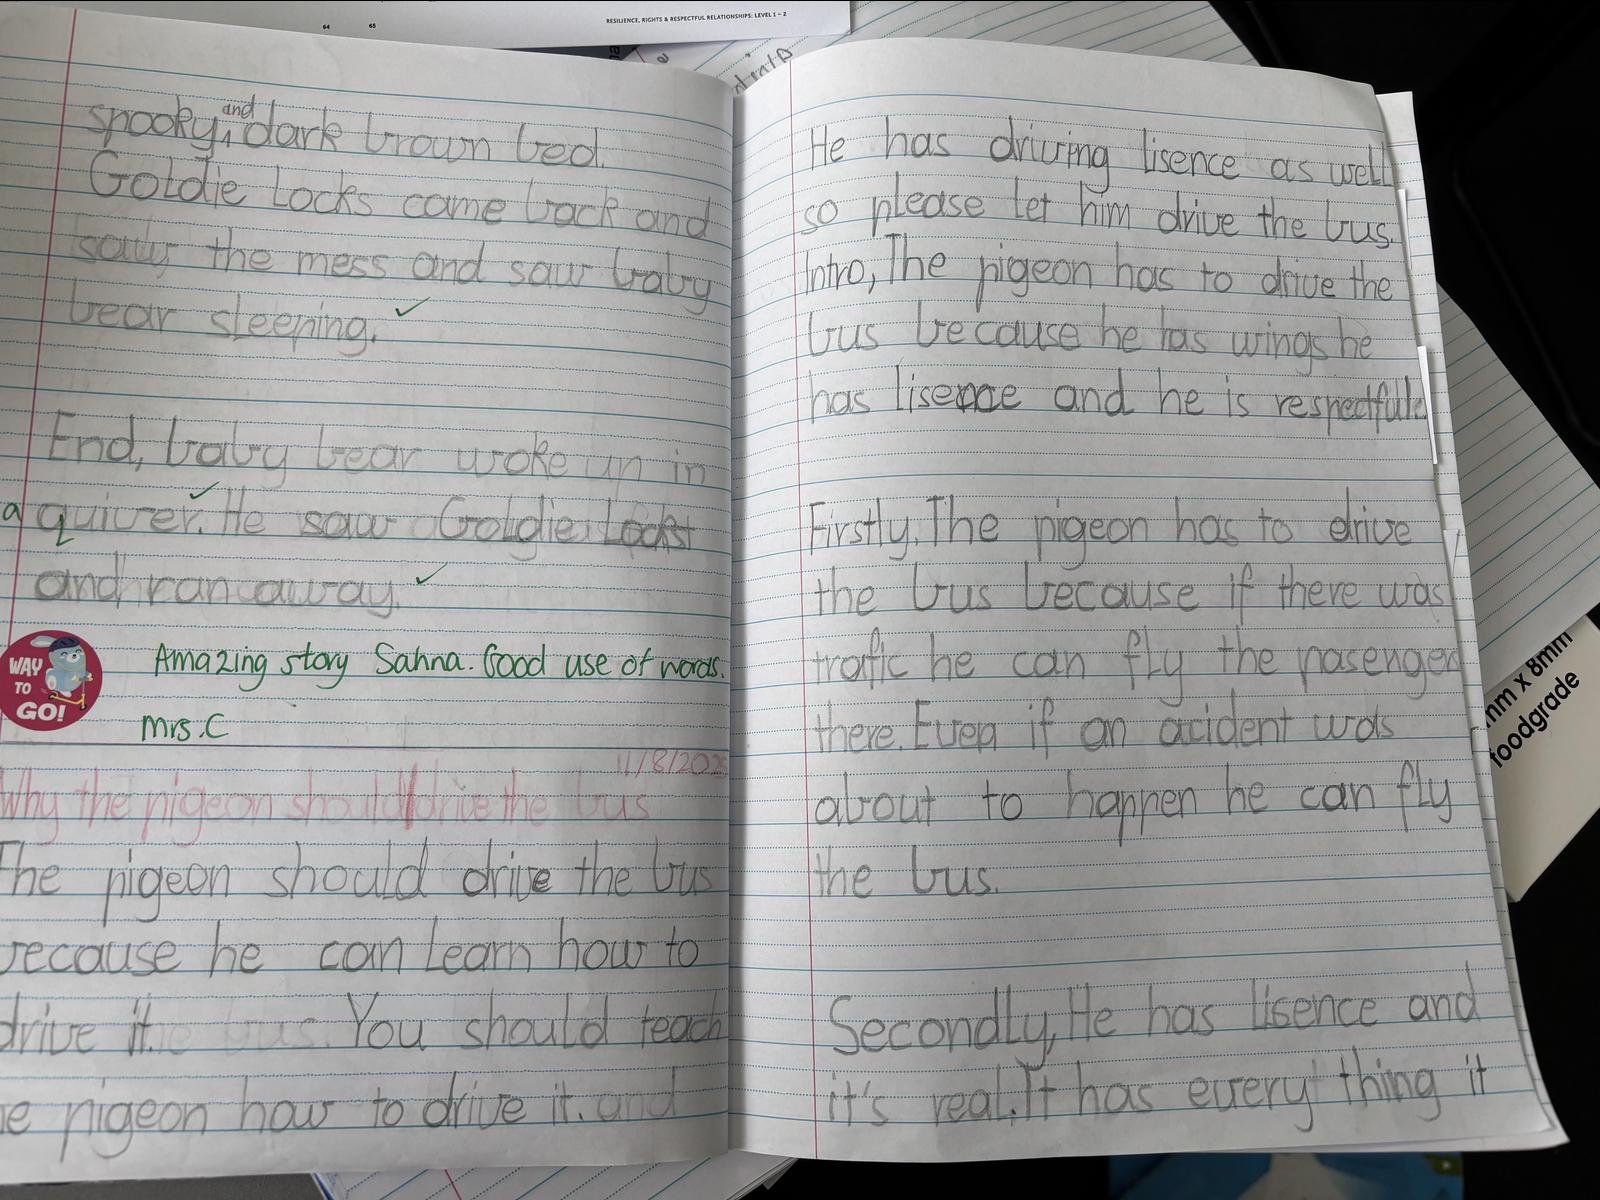 64 65
RESILIENCE, RIGHTS & RESPECTFUL RELATIONSHIPS: LEVEL 1 – 2
spooky, and dark brown bed.
Goldie Locks came back and
saw the mess and saw baby
bear sleeping.
End, baby bear woke up in
a quiver. He saw Goldie Locks
and ran away.
WAY
TO
GO!
Amazing story Sahna. Good use of words.
Mrs.C
11/8/2025
Why the pigeon should drive the bus
The pigeon should drive the bus
because he can learn how to
drive it. You should teach
he pigeon how to drive it. and
He has driving lisence as well
so please let him drive the bus.
Intro, The pigeon has to drive the
bus because he has wings he
has lisence and he is respectful.
Firstly, The pigeon has to drive
the bus because if there was
trafic he can fly the pasenger
there. Even if an acident was
about to happen he can fly
the bus.
Secondly, He has lisence and
it's real. It has every thing it
mm x 8mm
foodgrade